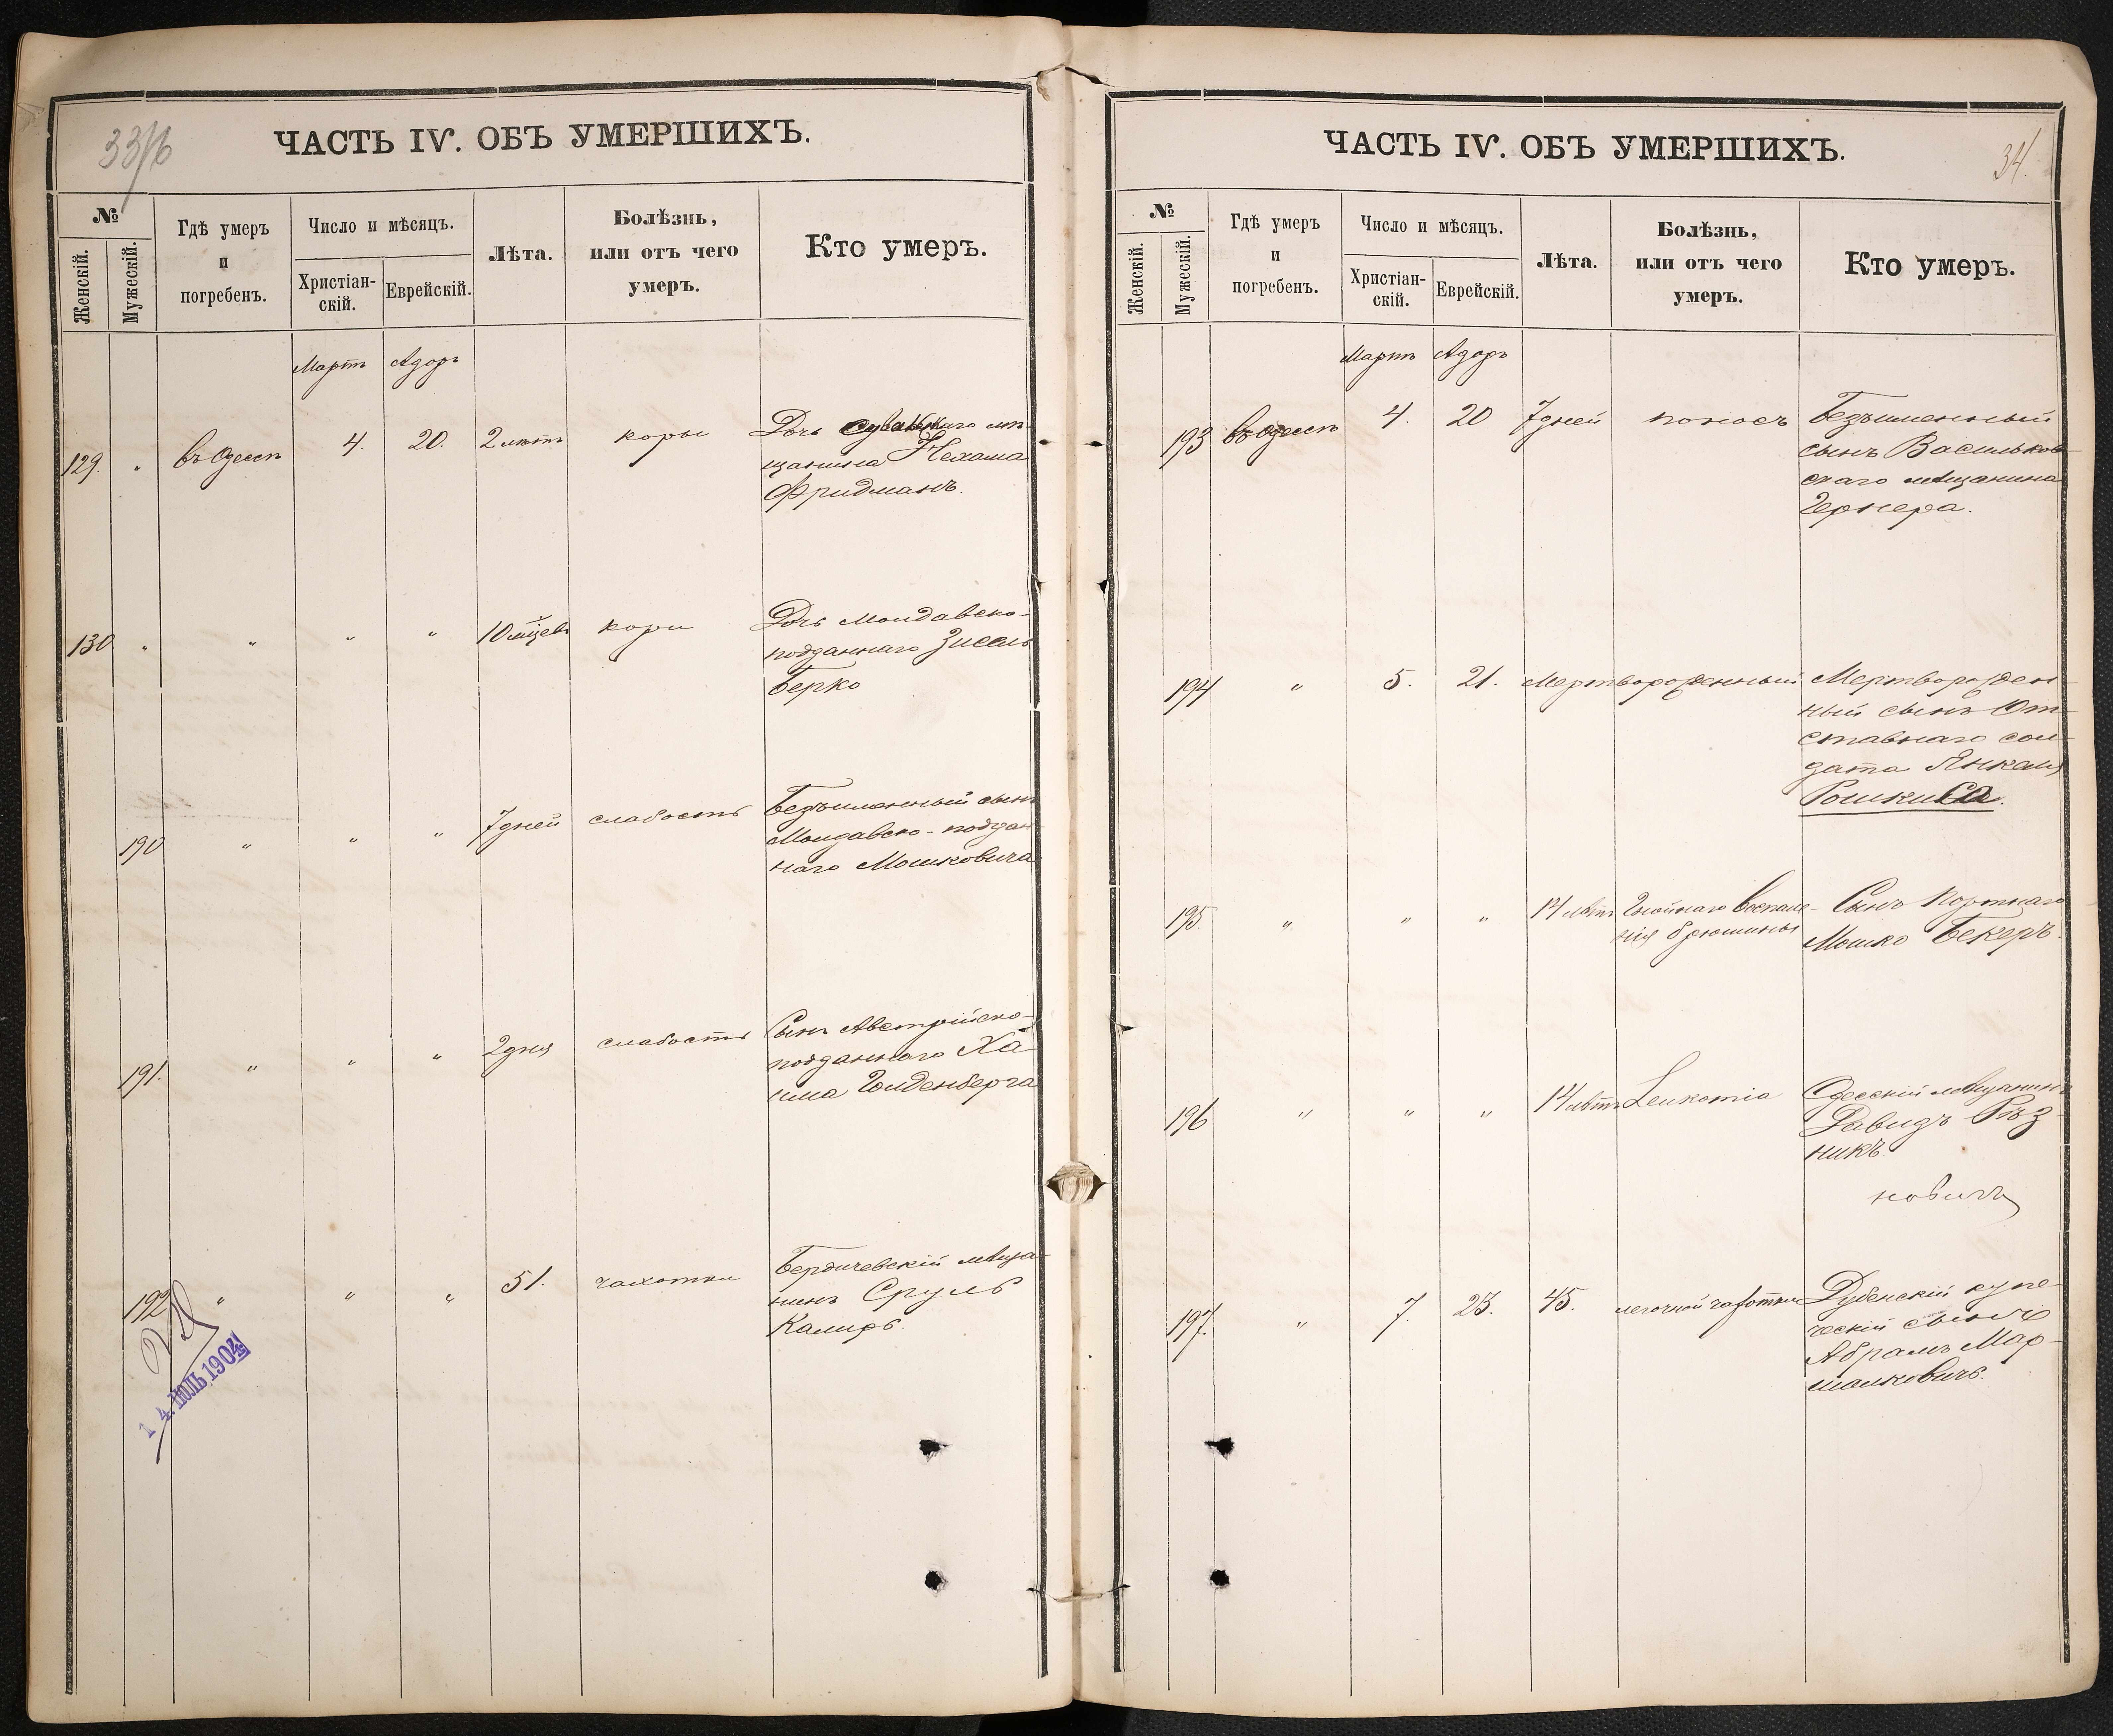 ЧАСТЬ IV. ОБЪ УМЕРШИХЪ.
№
Женскій.
Мужескій.
Гдѣ умеръ
и
погребенъ.
Число и мѣсяцъ.
Христіан-
скій.
Еврейскій.
Лѣта.
Болѣзнь,
или отъ чего
умеръ.
Кто умеръ.
Мартъ Адоръ
129. " въ Одессѣ 4. 20. 2 лѣтъ коры Дочь мѣ-
щанина Нехама
Фридманъ.
130 " " " " 10 мѣсцевъ кори Дочь Молдавско-
подданнаго Зисель
Берко
190 " " " 7 дней слабость Безъименный сынъ
Молдавско-поддан
наго Мошковича
191. " " " 2 дня слабость Сынъ Австрійско-
подданнаго Ха
има Голденберга
192 " " " 51. чахотки Бердичевскій мѣща-
нинъ Сруль
Калиръ.
14 ІЮЛЬ 1904
ЧАСТЬ IV. ОБЪ УМЕРШИХЪ.
34.
№
Женскій.
Мужескій.
Гдѣ умеръ
и
погребенъ.
Число и мѣсяцъ.
Христіан-
скій.
Еврейскій.
Лѣта.
Болѣзнь,
или отъ чего
умеръ.
Кто умеръ.
Мартъ Адоръ
193 въ Одессѣ 4. 20 7 дней поносъ Безъименный
сынъ Васильков-
скаго мѣщанина
Чернера.
194 " 5. 21. Мертворожденный Мертворожден
ный сынъ От-
ставнаго сол-
дата Янкеля
195. " " " 14 лѣтъ Гнойнаго воспале- Сынъ Портнаго
нія брюшины Мошко Бекеръ.
196 " " " 14 лѣтъ Leukomia Одесскій мѣщанинъ
Давидъ Рѣз-
никъ.
новичъ
197. " 7. 23. 45. легочной чахотки Дубенскій купе-
ческій сынъ
Абрамъ Мар-
шалковичъ.